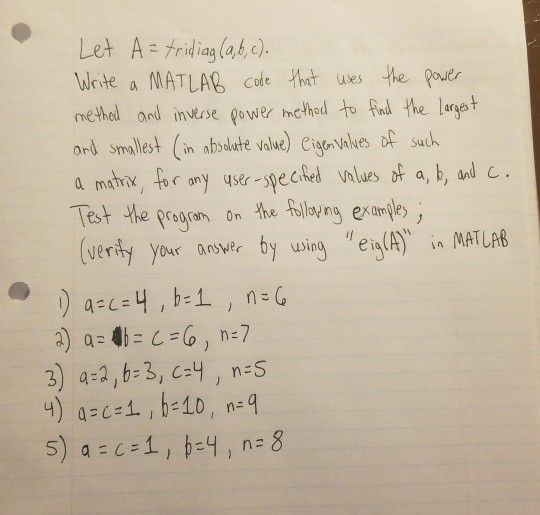 Let A = tridiag(a,b,c).
Write a MATLAB code that uses the power
method and inverse power method to find the largest
and smallest (in absolute value) eigenvalues of such
a matrix, for any user-specified values of a, b, and c.
Test the program on the following examples;
(verify your answer by using "eig(A)" in MATLAB
1) a=c=4, b=1, n=6
2) a=b=c=6, n=7
3) a=2, b=3, c=4, n=5
4) a=c=1, b=10, n=9
5) a=c=1, b=4, n=8